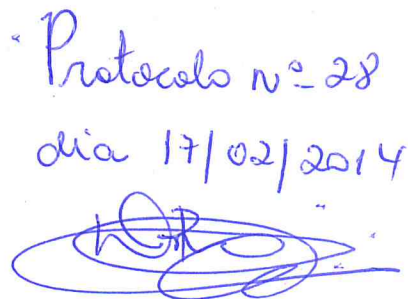 Protocolo Nº 28
dia 17/02/2014